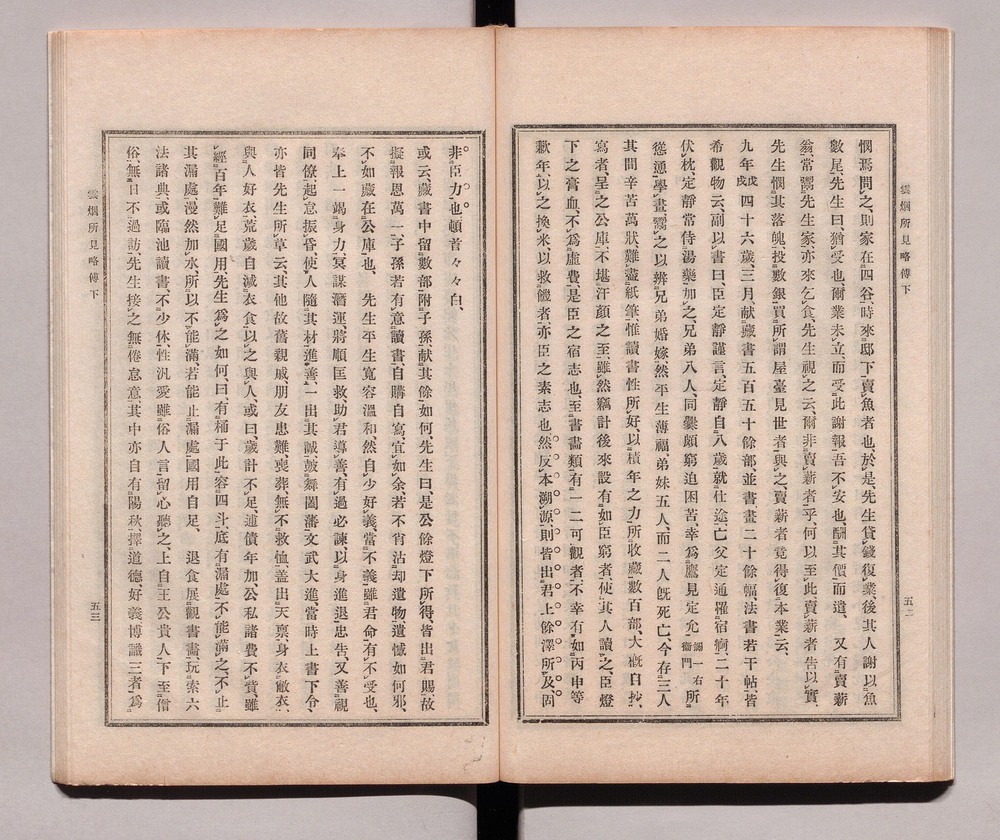 雲烟所見略傳下
五二
憫焉問之、則家在四谷、時來邸下賣魚者也、於是先生貸錢復業、後其人謝以魚
數尾、先生曰、猶受也、爾業未立、而受此謝報、吾不安也、酬其價而遣、又有賣薪
翁、常鬻先生家、亦來乞食、先生視之云、爾非賣薪者乎、何以至此、賣薪者告以實、
先生憫其落魄、投數銀買所謂屋臺見世者與之、賣薪者竟得復本業云、
九年戊戌四十六歲三月献藏書五百五十餘部並書畫二十餘幅、法書若干帖、皆
希觀物云、副以書曰、臣定靜謹言、定靜自八歲就仕途、亡父定通罹宿痾、二十年
伏枕、定靜常侍湯藥、加之兄弟八人、同爨頗窮迫困苦、幸爲鷹見定允錫一右衞門所
慫慂學畫、鬻之以辨兄弟婚嫁、然平生薄福、弟妹五人、而二人既死亡、今存三人
其間辛苦萬狀、難盡紙筆、惟讀書性所好、以積年之力、所收藏數百部、大概自抄、
寫者、呈之公庫、不堪汗顏之至、雖然竊計、後來設有如臣窮者、使其人讀之、臣燈
下之膏血、不爲虛費、是臣之宿志也、至書畵類、有一二可觀者、不幸有如丙申等
歉年、以之換米、以救饑者、亦臣之素志也、然反本溯源、則皆出君上餘澤所及、固
非臣力也、頓首々々白、
或云、藏書中留數部附子孫、献其餘如何、先生曰、是公餘燈下所得、皆出君賜、故
擬報恩萬一、子孫若有意讀書、自購自寫、宜如余、若不肖沽却遺物、遺憾如何邪、
不如藏在公庫也、先生平生寬容溫和、然自少好義、當不義、雖君命有不受也、
奉上一竭身力、冥謀潛運、將順匡救、助君導善、有過必諫、以身進退忠告、又善視
同僚、起怠振昏、使人隨其材進善、一出其誠、鼓舞闔藩文武大進、當時上書下令、
亦皆先生所草云、其他故舊親戚朋友患難喪葬、無不救恤、盖出天禀、身衣敝衣、
與人好衣、荒歲自減衣食、以之與人、或曰、歲計不足、逋債年加、公私諸費不貲、雖
經百年、難足國用、先生爲之如何、曰、有桶于此、容四斗、底有漏處、不能滿之、不止
其漏處、漫然加水、所以不能滿、若能止漏處、國用自足、退食展觀書畵、玩索六
法諸典、或臨池讀書、不少休、性汎愛、雖俗人言、留心聽之、上自王公貴人、下至僧
俗、無日不過訪、先生接之無倦怠意、其中亦自有陽秋、擇道德、好義、博識三者、爲
雲烟所見略傳下
五三